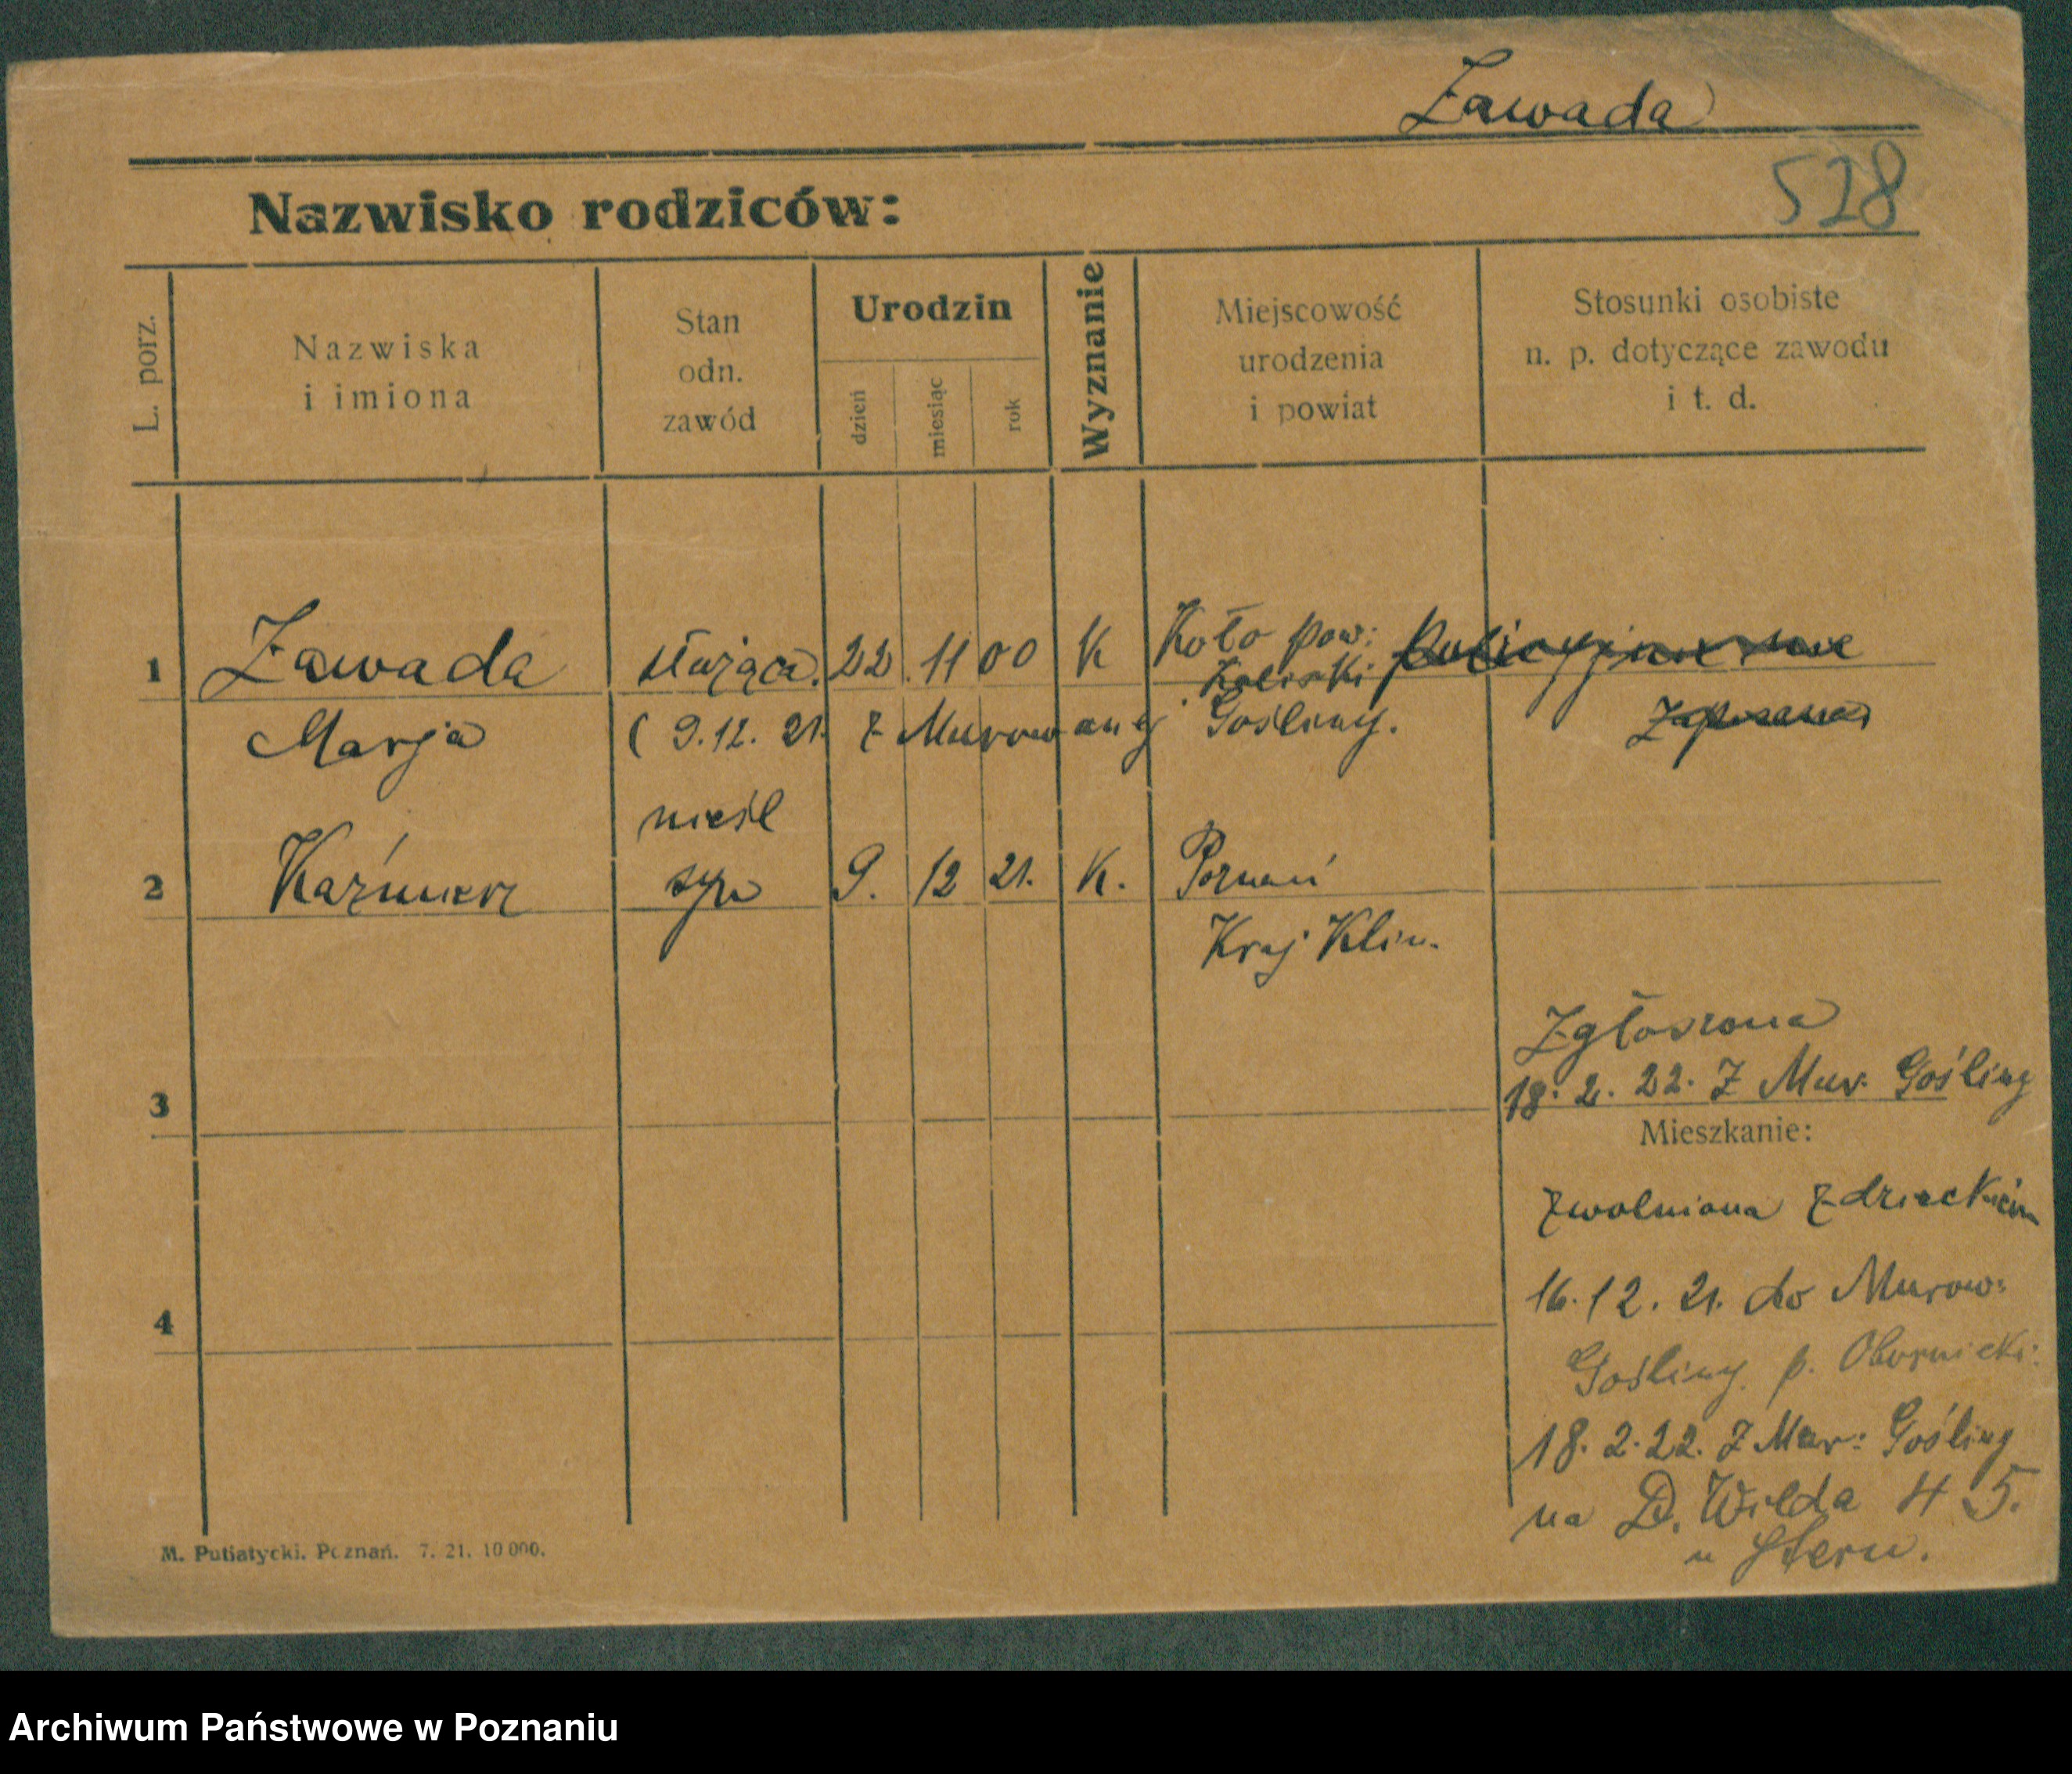 Zawada
528
Nazwisko rodziców:
L. porz.
Nazwiska
i imiona
Stan
odn.
zawód
Urodzin
dzień
miesiąc
rok
Wyznanie
Miejscowość
urodzenia
i powiat
Stosunki osobiste
n. p. dotyczące zawodu
i t. d.
1 Zawada służąca. 22. 11 00 K Koło pow:
Kolski
Marja ( 9.12. 21. z Murowanej Gośliny.
zapisana
nieśl
2 Kaźmierz syn 9. 12 21. K. Poznań
Kraj Klin.
Zgłoszona
18. 2. 22. Z Mur. Gośliny
3
Mieszkanie:
Zwolniona z dzieckiem
16. 12. 21. do Murow:
4
Gośliny p. Obornicki.
18. 2. 22. Z Mur: Gośliny
na D. Wilda 45.
u Stern.
M. Putiatycki. Poznań. 7. 21. 10 000.
Archiwum Państwowe w Poznaniu